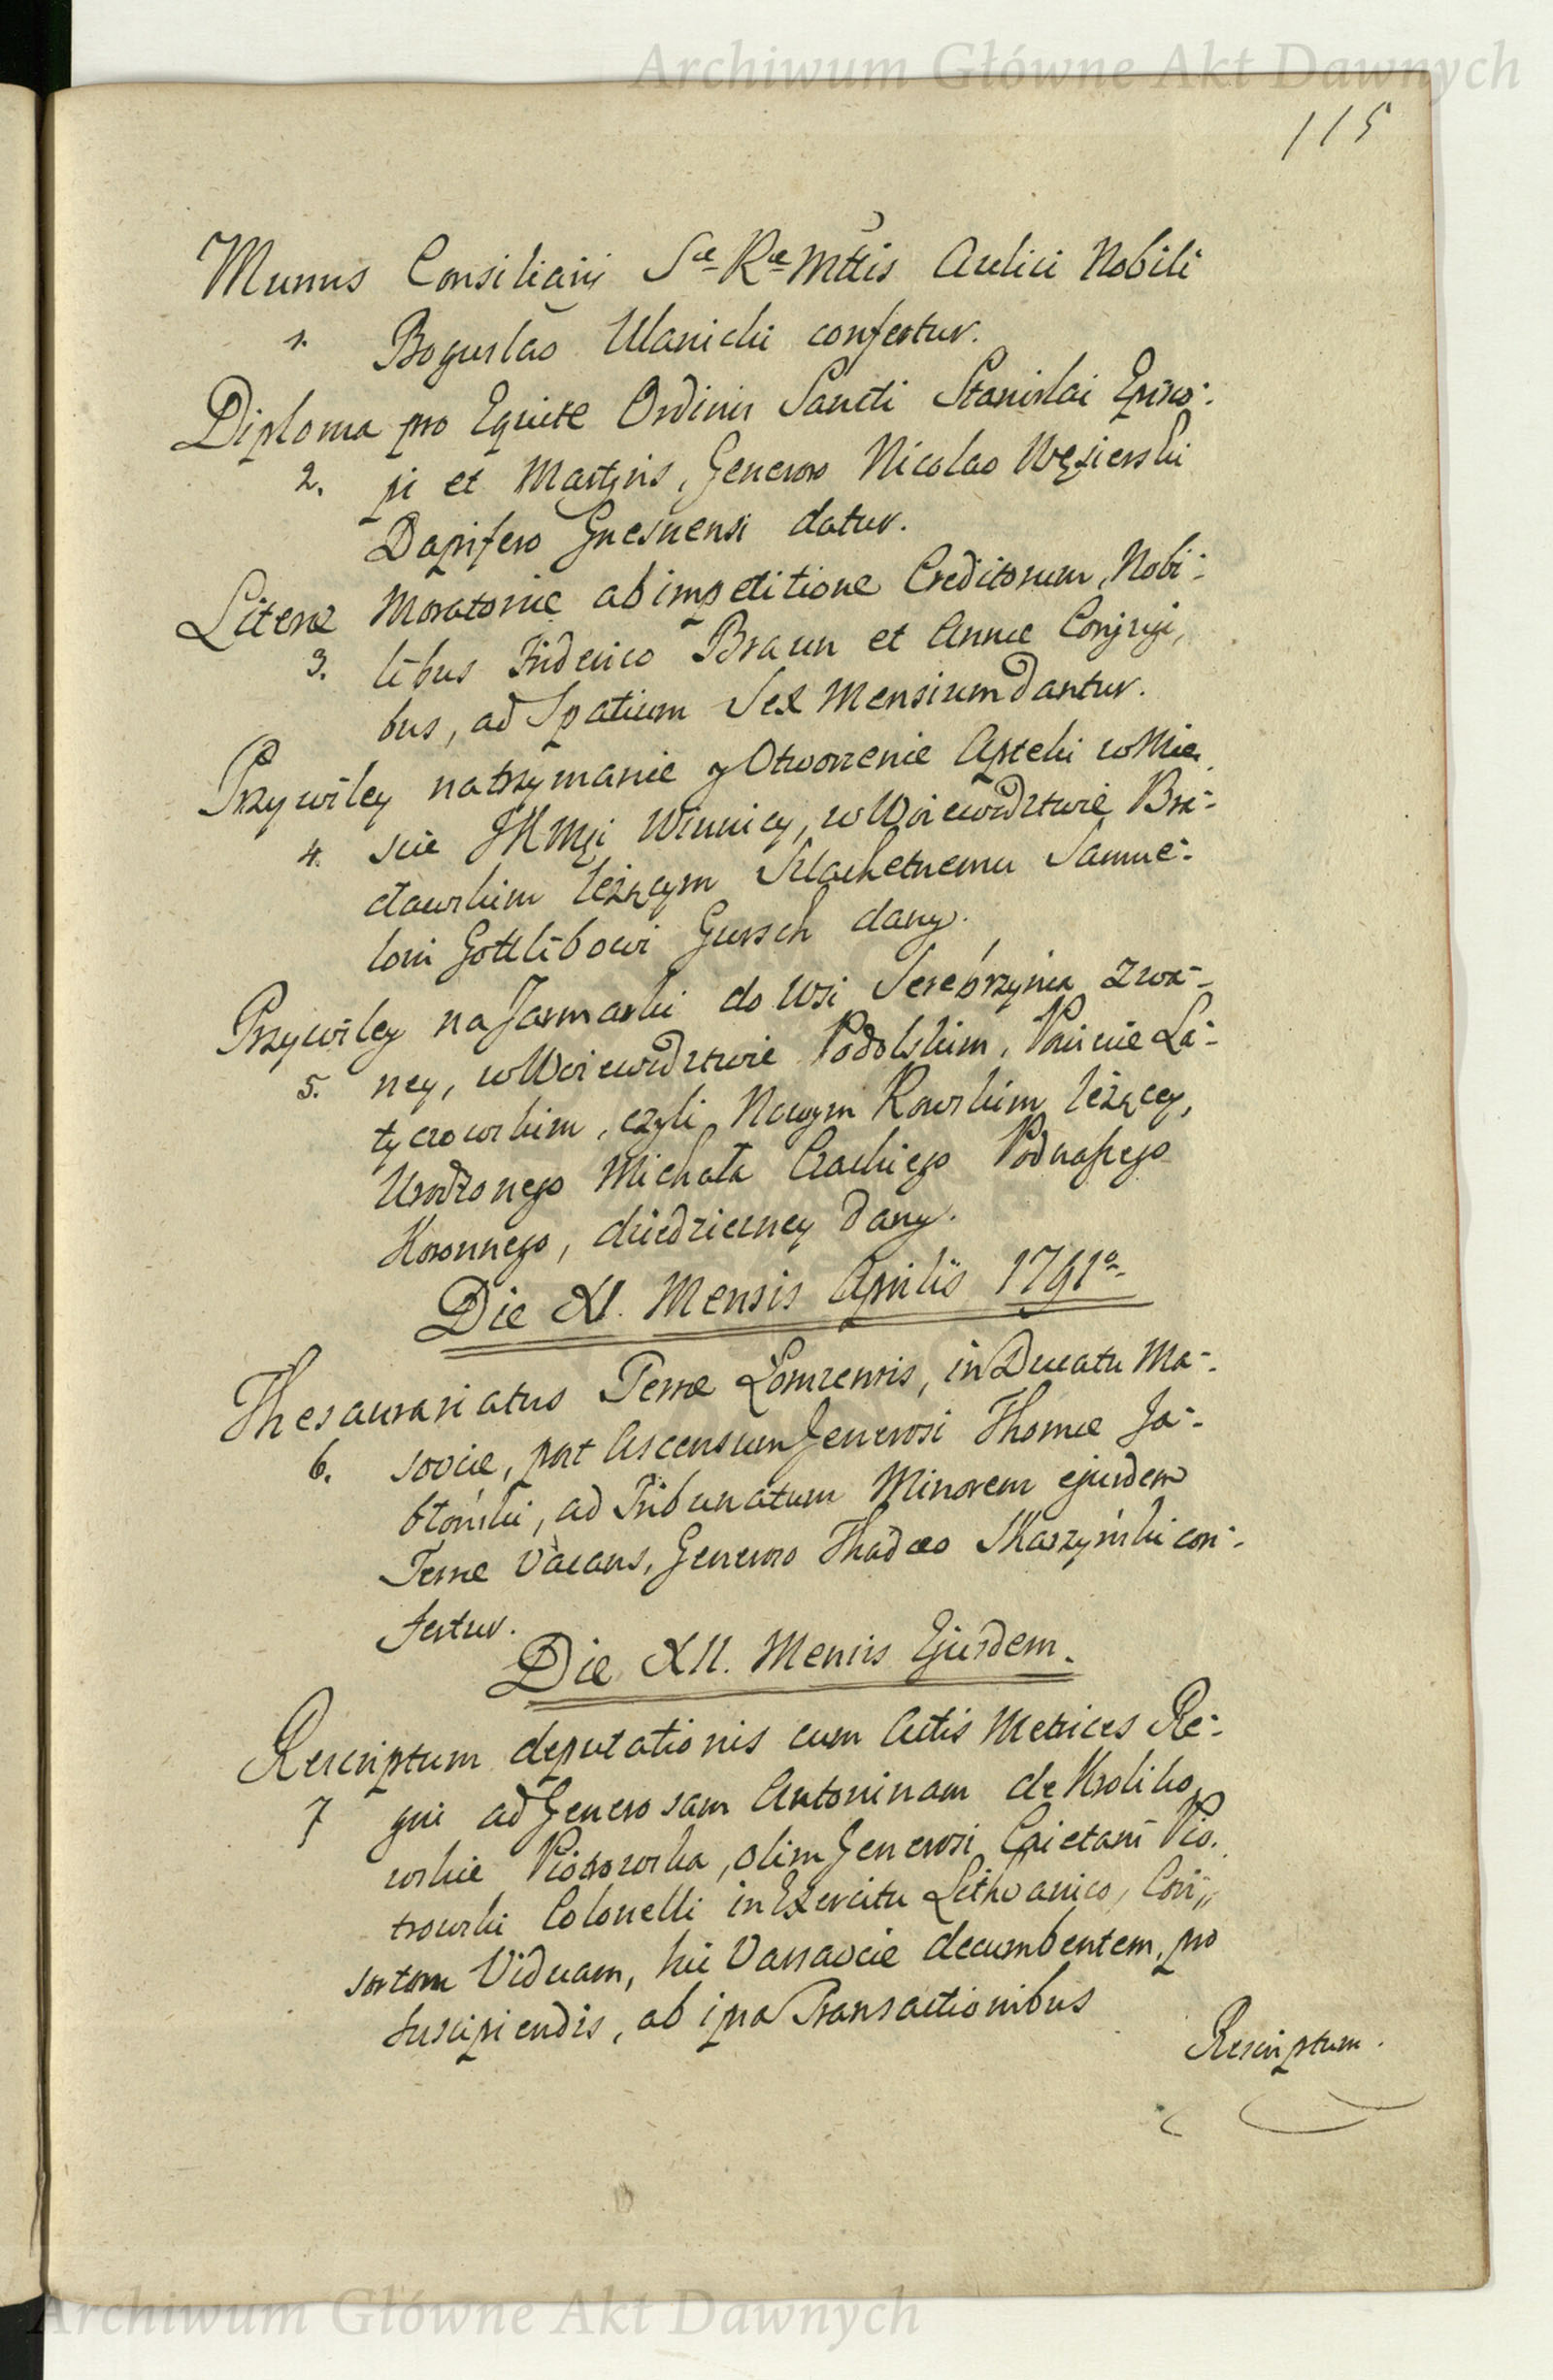 Archiwum Główne Akt Dawnych
115
Munus Consiliarii Sæ Ræ Mttis Aulici Nobili
1. Boguslao Ulanicki confertur.
Diploma pro Equite Ordinis Sancti Stanislai Episco-
2. pi et Martyris, Generoso Nicolao Węsierski
Dapifero Gnesnensi datur.
Literæ Moratoriæ ab impetitione Creditorum, Nobi-
3. libus Friderico Braun et Annæ Conjugi,
bus, ad Spatium Sex Mensium dantur.
Przywiley na trzymanie y Otworzenie Apteki w Mie,
4. scie JKMci Winnicy, w Woiewodztwie Bra-
cławskim leżącym Szlachetnemu Samue-
lowi Gottlibowi Gursch dany.
Przywiley na Jarmarki do Wsi Serebrzynia zwa-
5. ney, w Woiewodztwie Podolskim, Powiecie La-
tyczowskim, czyli Nowym Rowskim leżącey,
Urodzonego Michała Czackiego Podczaszego
Koronnego, dziedziczney dany.
Die XI. Mensis Aprilis 1791o
Thesaurariatus Terræ Łomzensis, in Ducatu Ma-
6. soviæ, post Ascensum Generosi Thomæ Ja-
błoński, ad Tribunatum Minorem ejusdem
Terræ Vacans, Generoso Thadæo Skarzyński con-
fertur.
Die XII. Mensis Ejusdem.
Rescriptum deputationis cum Actis Metrices Re-
7 gni ad Generosam Antoninam de Kroliko,
wskie Piotrowska, olim Generosi Caietani Pio,
trowski Colonelli in Exercitu Lithvanico, Con,,
sortem Viduam, hic Varsaviæ decumbentem, pro
suscipiendis, ab ipsa Transactionibus
Rescriptum.
Archiwum Główne Akt Dawnych